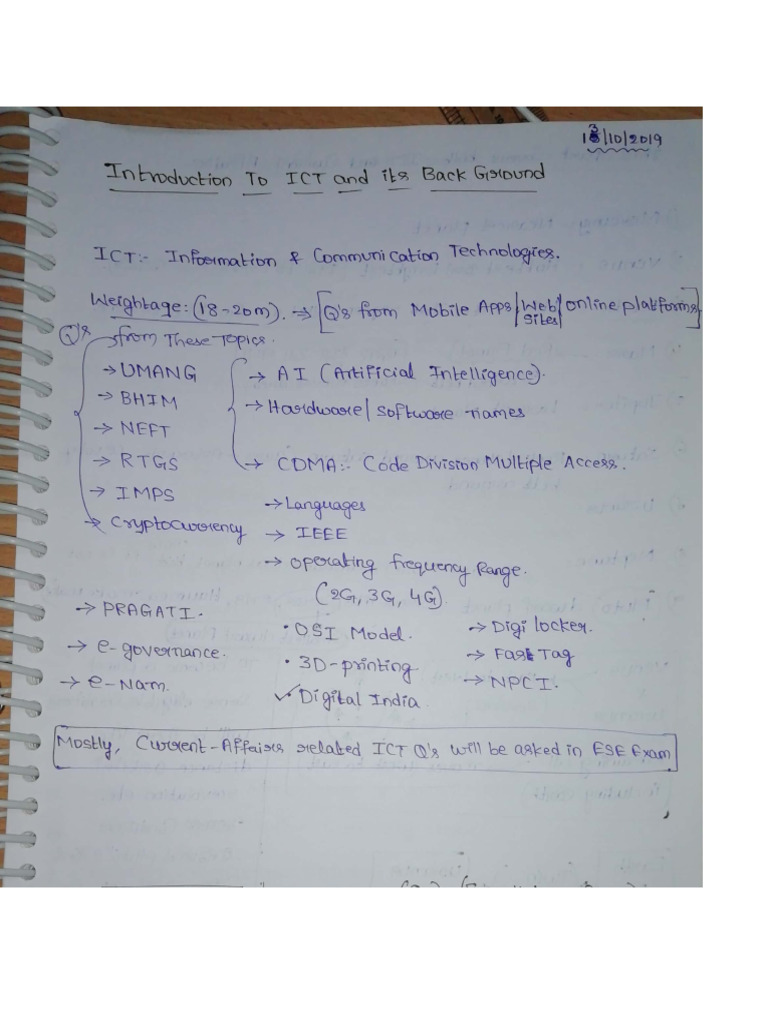 13/10/2019
Introduction To ICT and its Back Ground
ICT:- Information & Communication Technologies.
Weightage: (18-20m). → [Q's from Mobile Apps/Web Sites/online platforms]
Q's from These Topics.
→ UMANG → AI (Artificial Intelligence).
→ BHIM → Hardware/software names
→ NEFT
→ RTGS → CDMA:- Code Division Multiple Access.
→ IMPS → Languages
→ Cryptocurrency → IEEE
→ operating frequency Range.
(2G, 3G, 4G).
→ PRAGATI. • OSI Model. → Digi locker.
→ e-governance. • 3D-printing → Fas Tag
→ e-Nam. ✓ Digital India. → NPCI.
Mostly, Current-Affairs related ICT Q's will be asked in ESE Exam